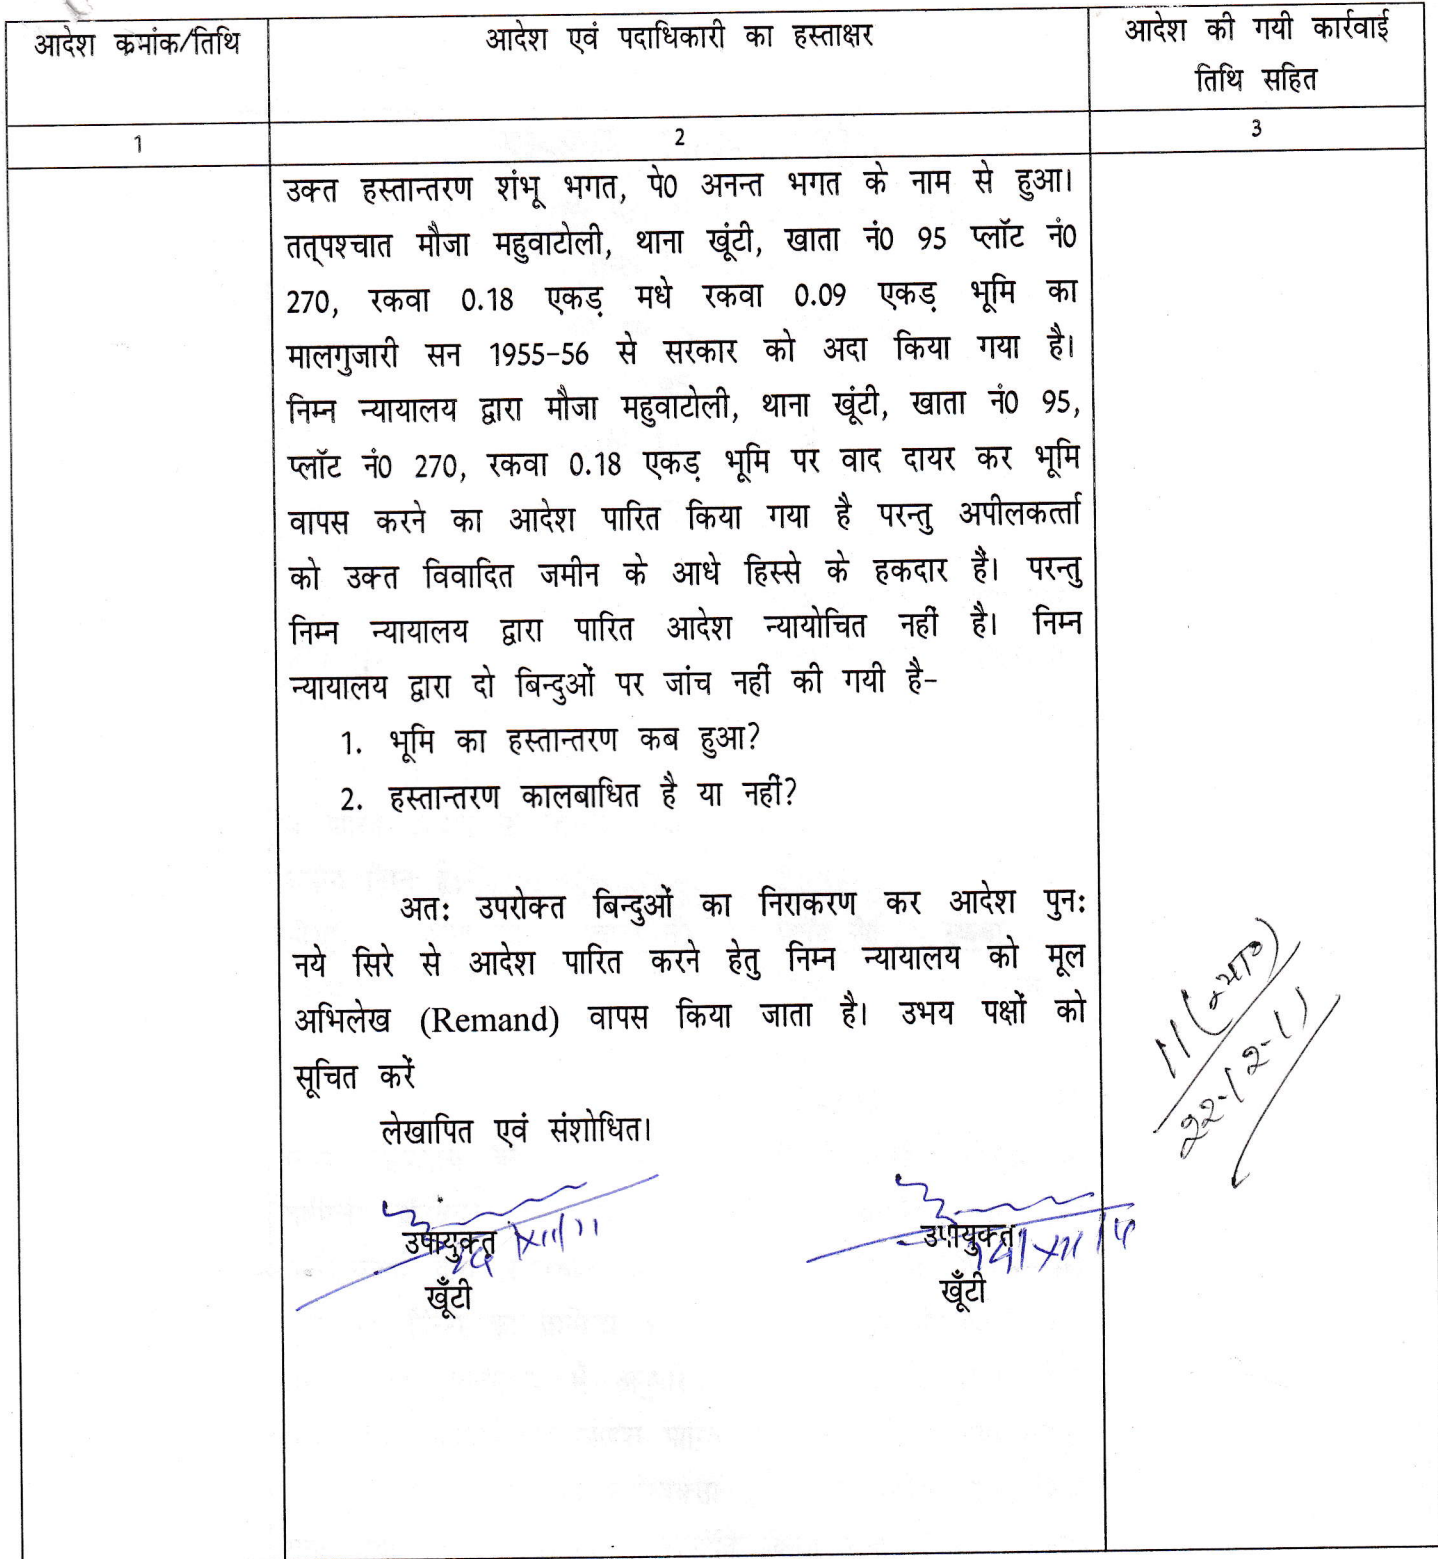 आदेश क्रमांक/तिथि
आदेश एवं पदाधिकारी का हस्ताक्षर
आदेश की गयी कार्रवाई
तिथि सहित
1
2
3
उक्त हस्तान्तरण शंभू भगत, पे0 अनन्त भगत के नाम से हुआ।
तत्पश्चात मौजा महुवाटोली, थाना खूंटी, खाता नं0 95 प्लॉट नं0
270, रकवा 0.18 एकड़ मधे रकवा 0.09 एकड़ भूमि का
मालगुजारी सन 1955-56 से सरकार को अदा किया गया है।
निम्न न्यायालय द्वारा मौजा महुवाटोली, थाना खूंटी, खाता नं0 95,
प्लॉट नं0 270, रकवा 0.18 एकड़ भूमि पर वाद दायर कर भूमि
वापस करने का आदेश पारित किया गया है परन्तु अपीलकर्त्ता
को उक्त विवादित जमीन के आधे हिस्से के हकदार हैं। परन्तु
निम्न न्यायालय द्वारा पारित आदेश न्यायोचित नहीं है। निम्न
न्यायालय द्वारा दो बिन्दुओं पर जांच नहीं की गयी है-
1. भूमि का हस्तान्तरण कब हुआ?
2. हस्तान्तरण कालबाधित है या नहीं?
अतः उपरोक्त बिन्दुओं का निराकरण कर आदेश पुनः
नये सिरे से आदेश पारित करने हेतु निम्न न्यायालय को मूल
अभिलेख (Remand) वापस किया जाता है। उभय पक्षों को
सूचित करें
लेखापित एवं संशोधित।
उपायुक्त
खूँटी
उपायुक्त
खूँटी